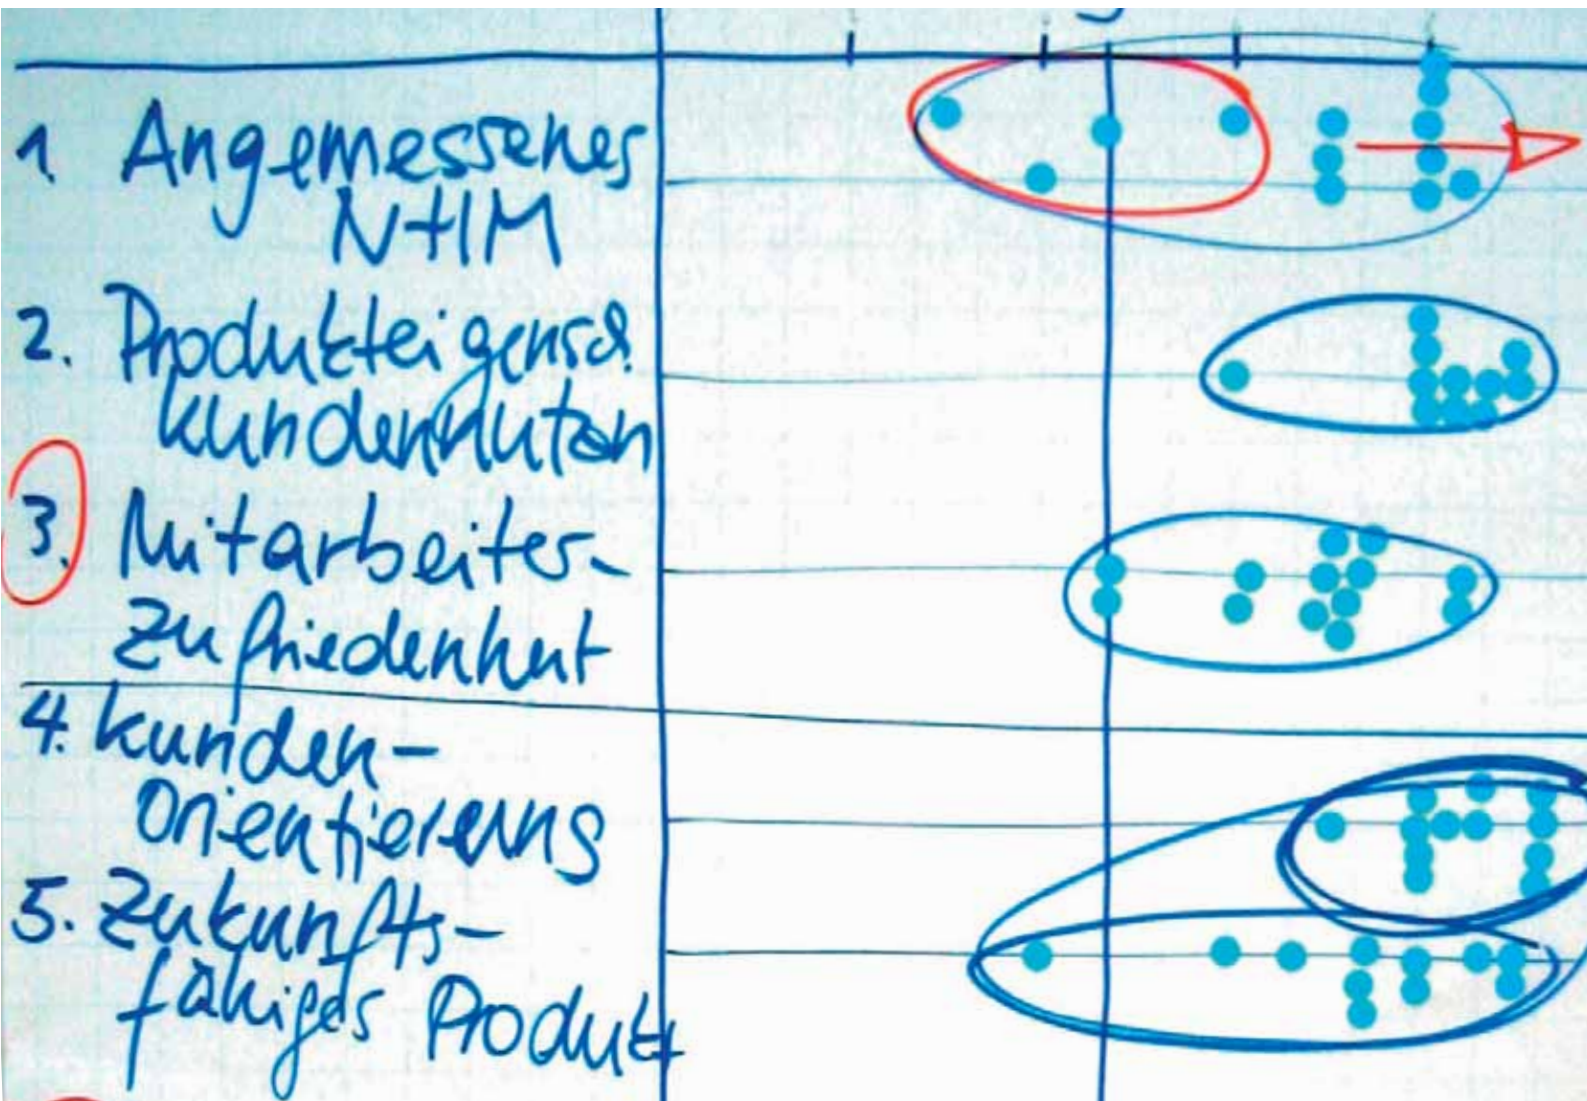 1. Angemessenes
N+IM
2. Produkteigensch.
Kundennutzen
3. Mitarbeiter-
zufriedenheit
4. Kunden-
orientierung
5. Zukunfts-
fähiges Produkt